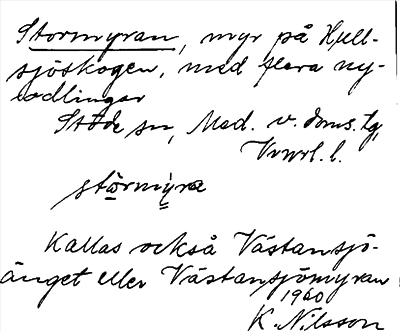 Stormyran, myr på Hull-
sjöskogen, med flera ny-
odlingar
Stöde sn, Med. v. doms. tg,
Vnrl. l.
stormyra
Kallas också Västansjö-
änget eller Västansjömyran
1960
K. Nilsson